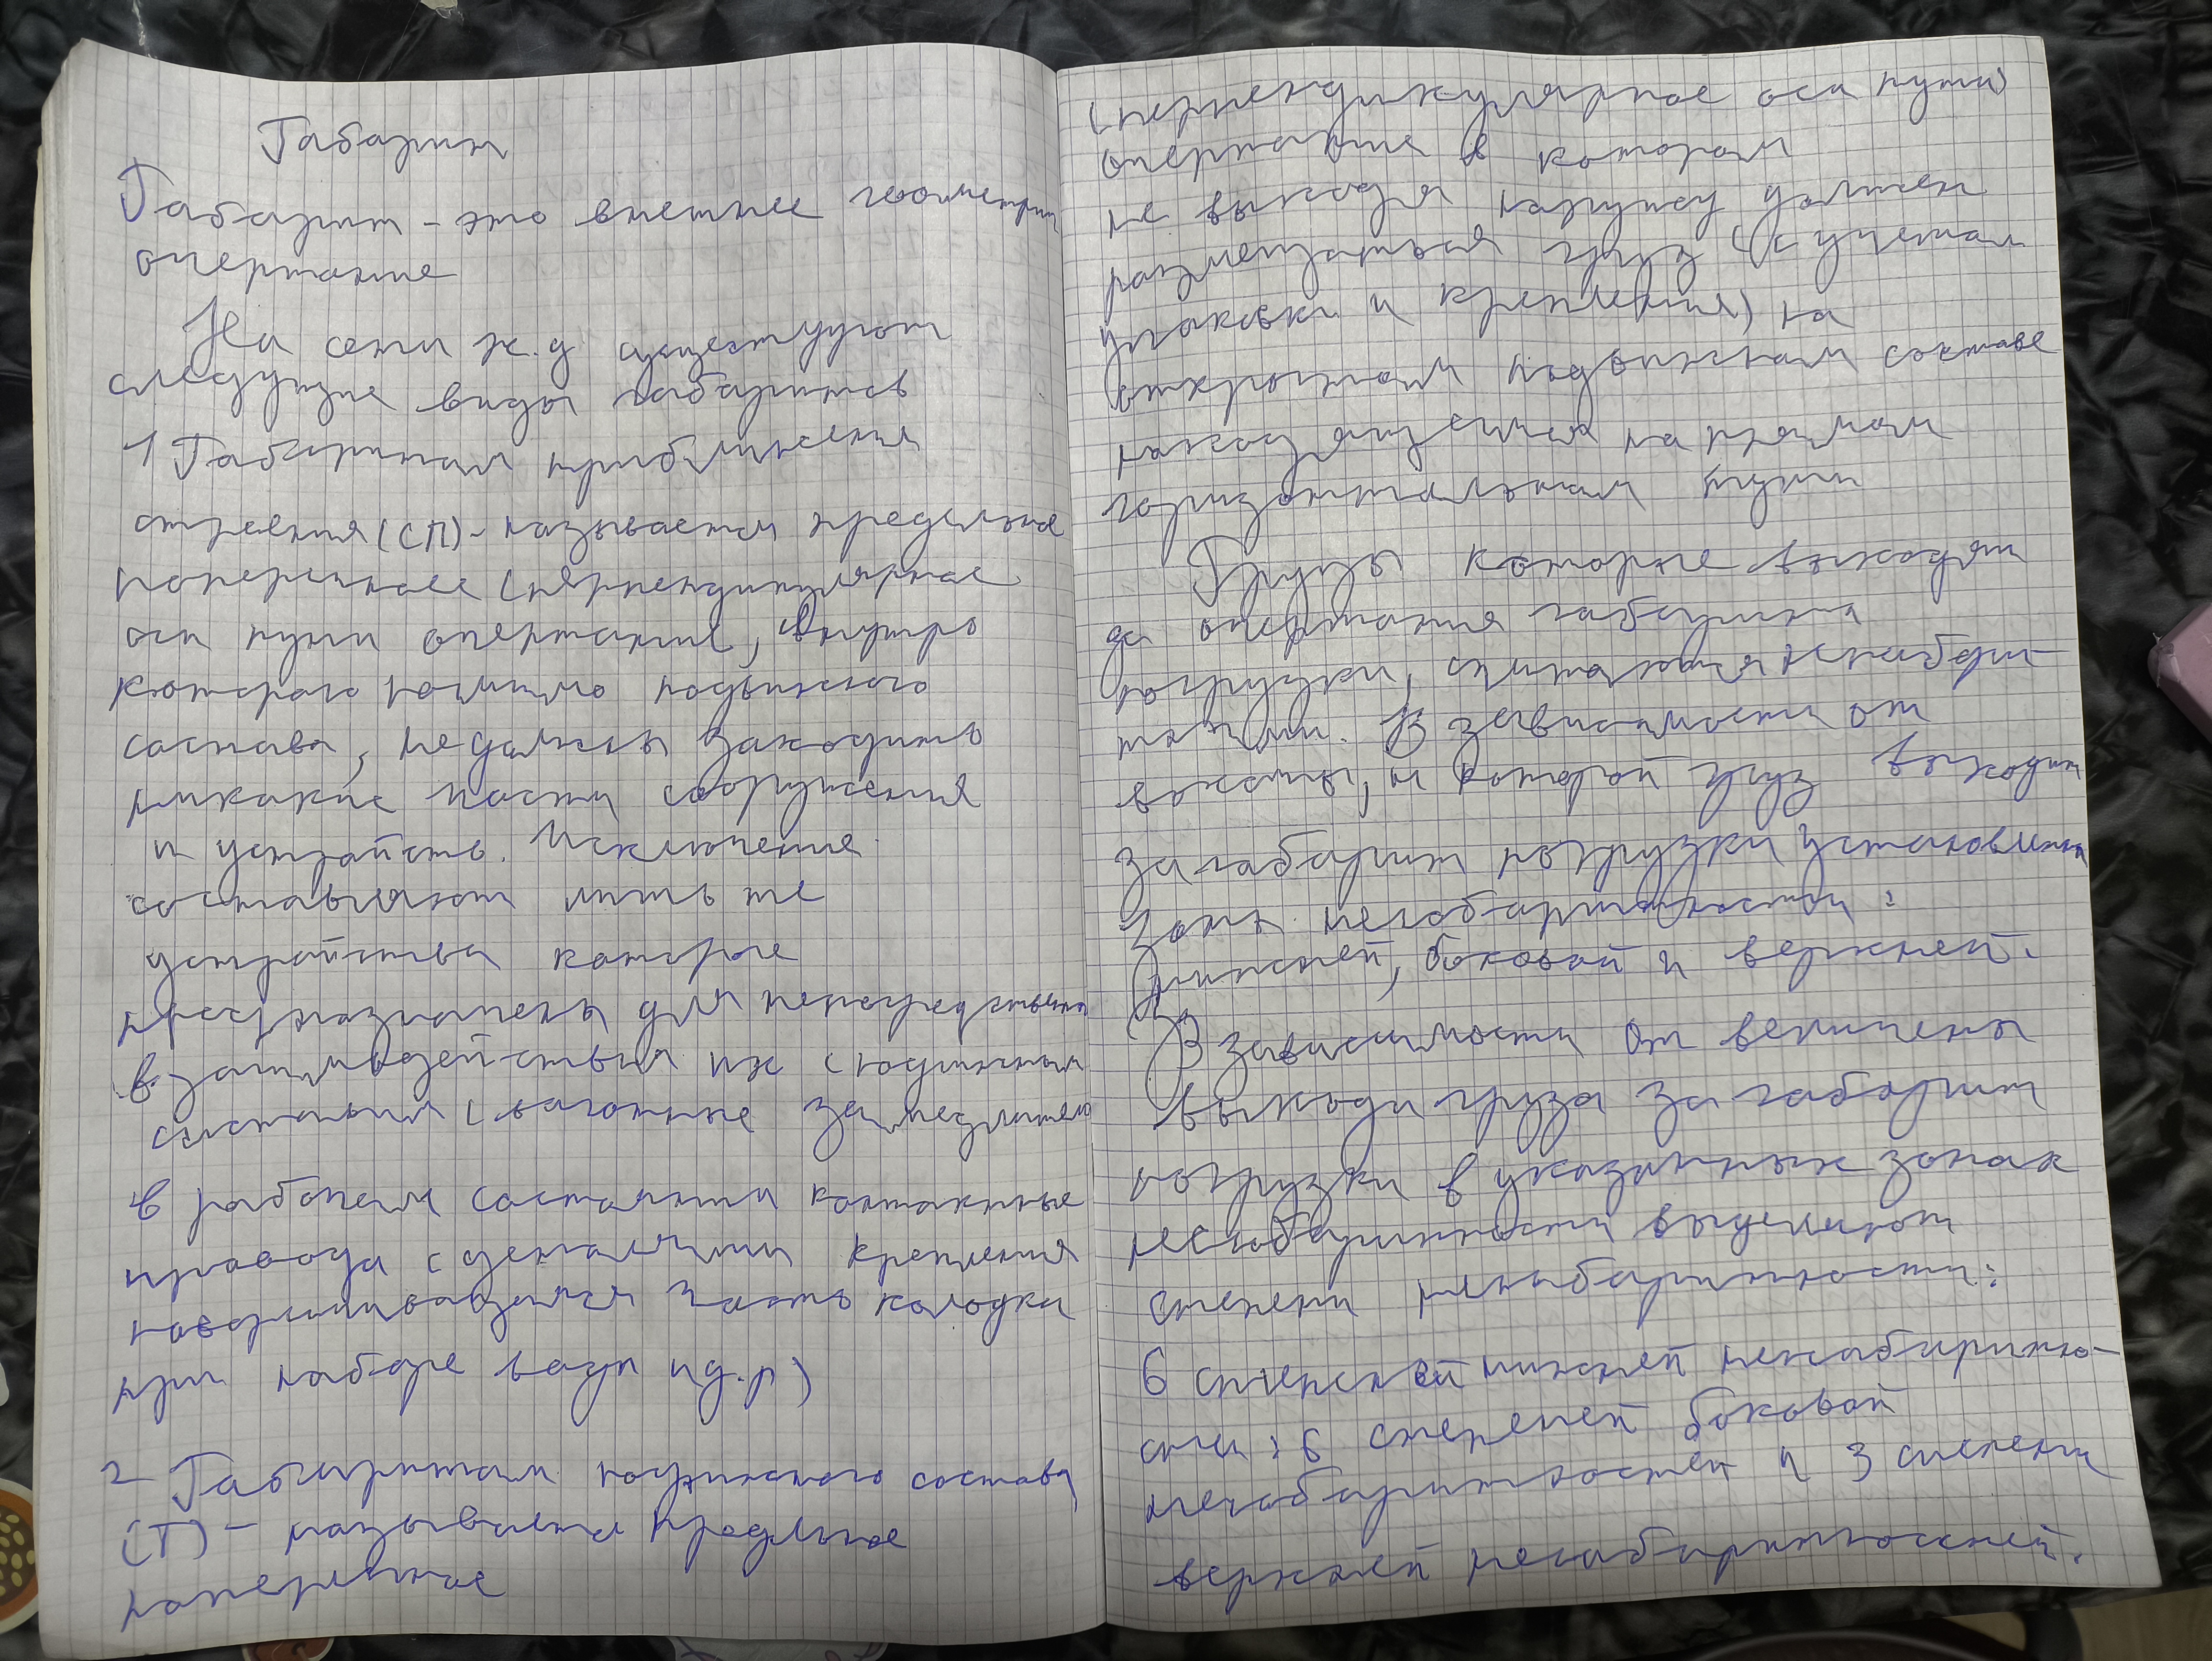 Габарит
Габарит - это внешнее геометрич
очертание
На сети ж.д существуют
следующие виды габаритов
1 Габаритом приближения
строения (СП) - называется предельное
поперечное (перпендикулярное
оси пути очертание, внутрь
которого помимо подвижного
состава, не должны заходить
никакие части сооружения
и устройств. Исключение
составляют лишь те
устройства которые
предназначены для непосредственно
взаимодействия их с подвижным
составом (вагонные замедлители
в рабочем состоянии контактные
провода с деталями крепления
поворачивающаяся часть колодки
при наборе воды и д.р)
2 Габаритом подвижного состава
(Т) - называется предельное
поперечное
(перпендикулярное оси пути)
очертание в котором
не выходя наружу должен
размещаться груз (с учетом
упаковки и крепления) на
открытом подвижном составе
находящемся на прямом
горизонтальном пути
Грузы которые выходят
за очертания габарита
погрузки, считаются негабарит-
ными. В зависимости от
высоты, на которой груз выходит
за габарит погрузки установлены
зоны негабаритности:
нижней, боковой и верхней.
В зависимости от величены
выхода груза за габарит
погрузки в указанных зонах
негабаритности выделяют
степени негабаритности:
6 степеней нижней негабаритно-
сти; 6 степеней боковой
негабаритностей и 3 степени
верхней негабаритностей.